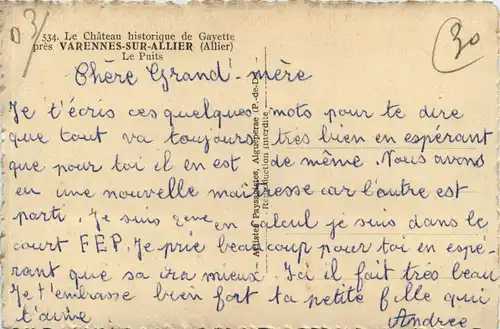 03/
30
534. Le Château historique de Gayette
près VARENNES-SUR-ALLIER (Allier)
Le Puits
Chère Grand'mère
Je t'écris ces quelques mots pour te dire
que tout va toujours très bien en espérant
que pour toi il en est de même. Nous avons
eu une nouvelle maîtresse car l'autre est
parti. Je suis en calcul je suis dans le
court F E P. Je prie beaucoup pour toi en espé-
rant que sa ira mieux. Ici il fait très beau
Je t'embrasse bien fort ta petite fille qui
t'aime Andree
Artistes Paysagistes, Aigueperse (P.-de-D.)
Reproduction interdite